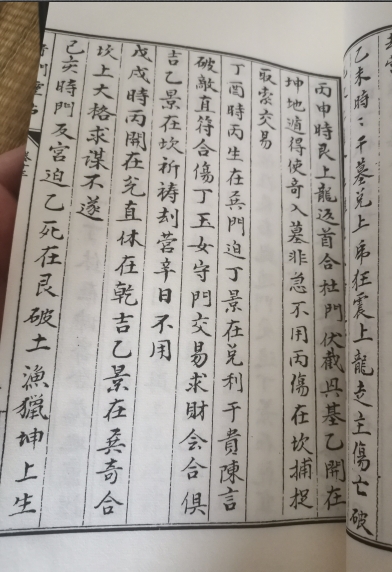 乙未時時干墓兌上虎狂震上龍走主傷亡破
丙申時艮上龍返首合杜門伏截與基乙開在
坤地遁得使奇入墓非急不用丙傷在坎捕捉
取索交易
丁酉時丙生在巽門迫丁景在兌利于貴陳言
破敵直符合傷丁玉女守門交易求財會合俱
吉乙景在坎祈祷刦营辛日不用
戊戌時丙開在兌直休在乾吉乙景在巽奇合
坎上大格求谋不遂
己亥時門反宫迫乙死在艮破土漁獵坤上生